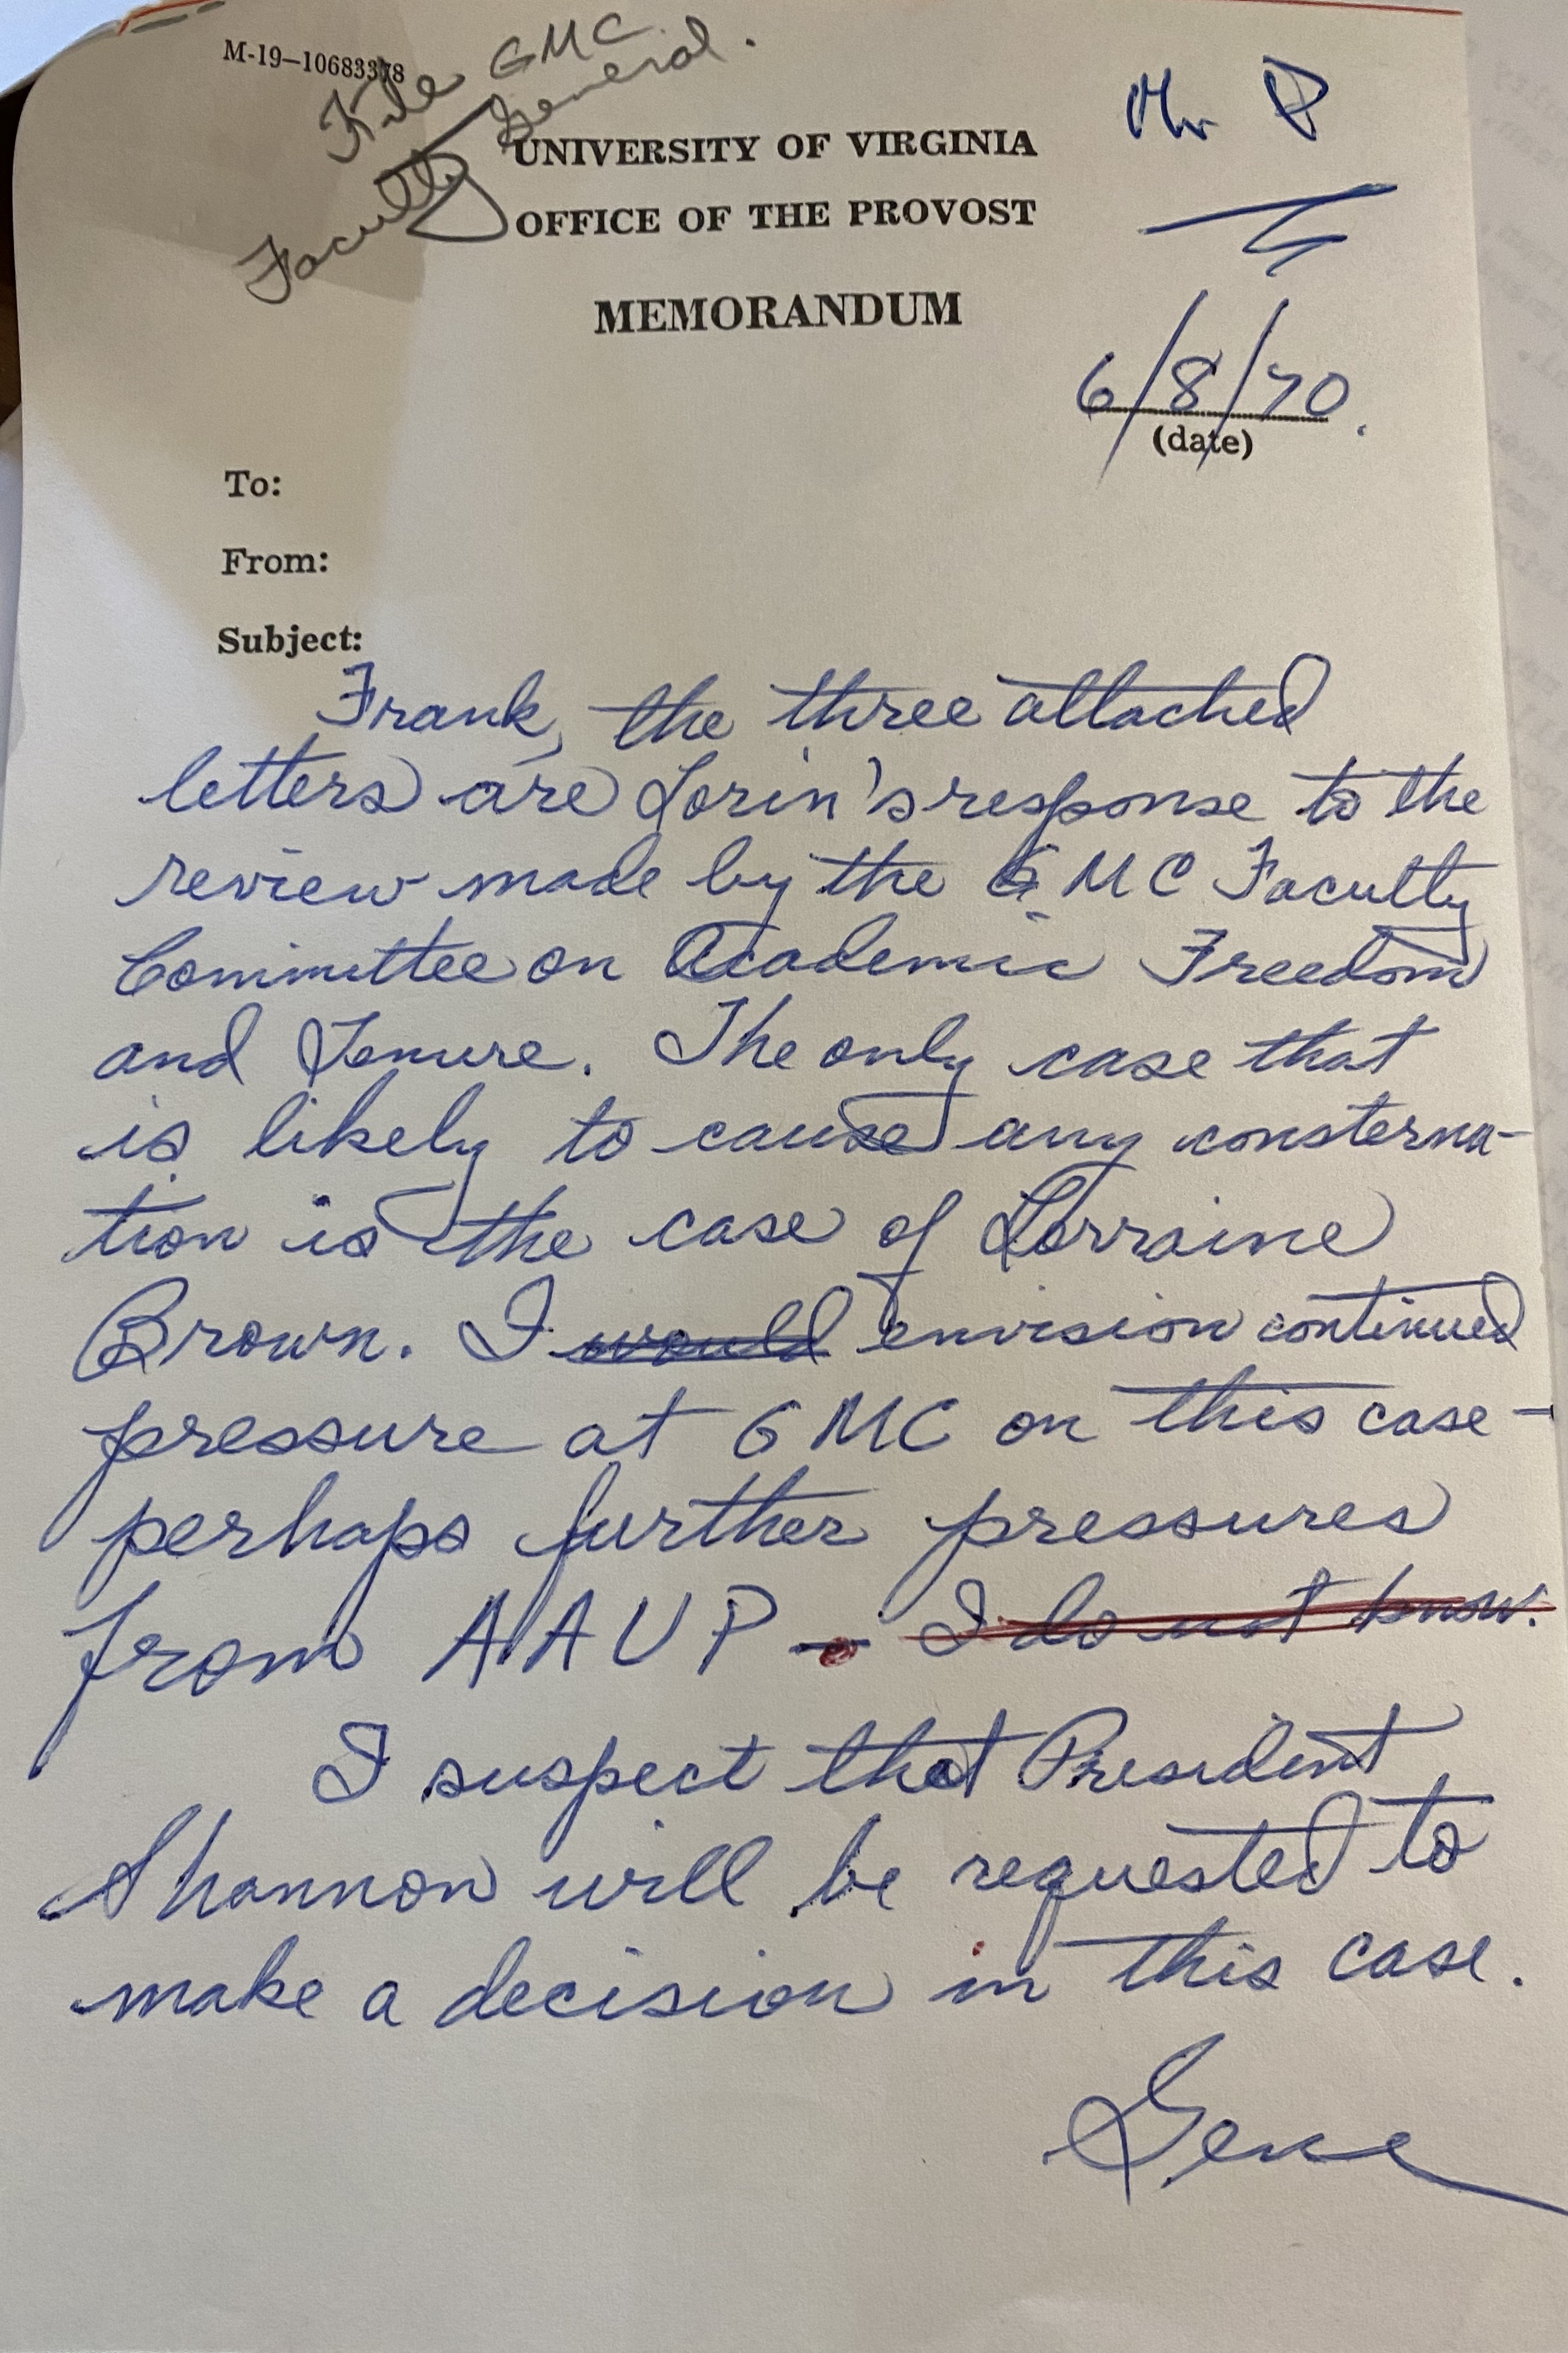 M-19—10683378
File GMC
Faculty General.
UNIVERSITY OF VIRGINIA
OFFICE OF THE PROVOST
MEMORANDUM
6/8/70.
(date)
To:
From:
Subject:
Frank, the three attached
letters are Lorin's response to the
review made by the GMC Faculty
Committee on Academic Freedom
and Tenure. The only case that
is likely to cause any consterna-
tion is the case of Lorraine
Brown. I would envision continued
pressure at GMC on this case -
perhaps further pressures
from AAUP - I do not know.
I suspect that President
Shannon will be requested to
make a decision in this case.
Gene